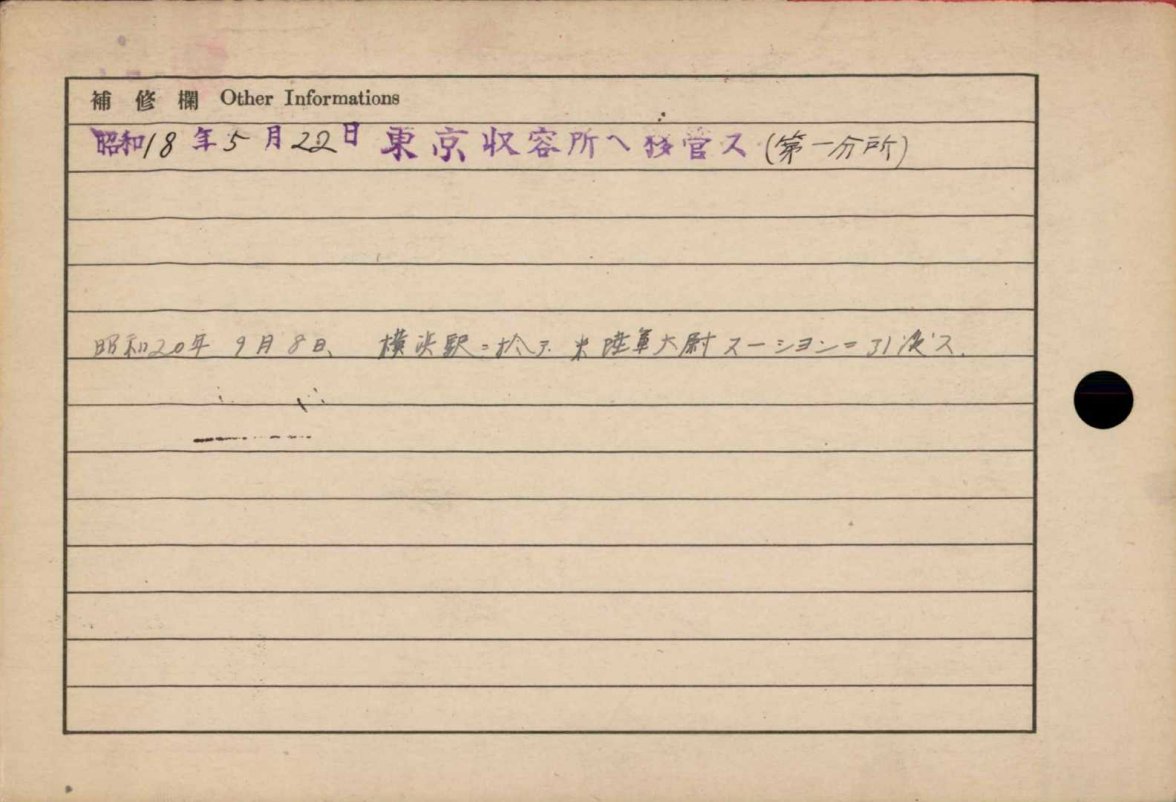 補修欄 Other Informations
昭和18年5月22日 東京収容所へ移管ス (第一分所)
昭和20年 9月8日、 横浜駅ニ於テ 米陸軍大尉 スーションニ引渡ス.